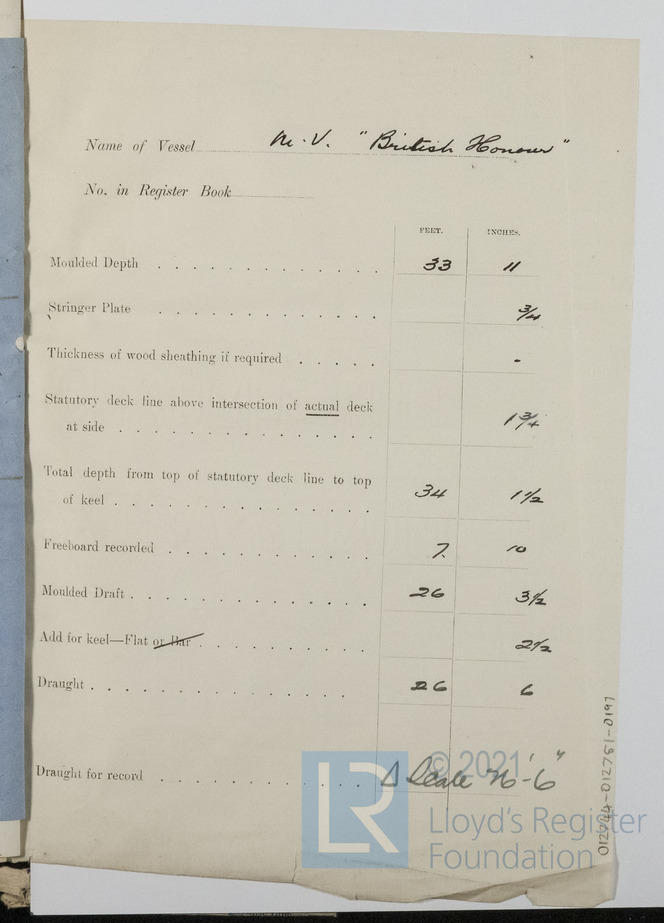 Name of Vessel M.V. "British Honour"
No. in Register Book
FEET. INCHES.
Moulded Depth 33 11
Stringer Plate 3/4
Thickness of wood sheathing if required -
Statutory deck line above intersection of actual deck
at side 1 3/4
Total depth from top of statutory deck line to top
of keel 34 1 1/2
Freeboard recorded 7. 10
Moulded Draft 26 3 1/2
Add for keel—Flat or Bar 2 1/2
Draught 26 6
Draught for record Δ Scale 26'-6"
© 2021
LR
Lloyd's Register
Foundation
012744-012751-0197